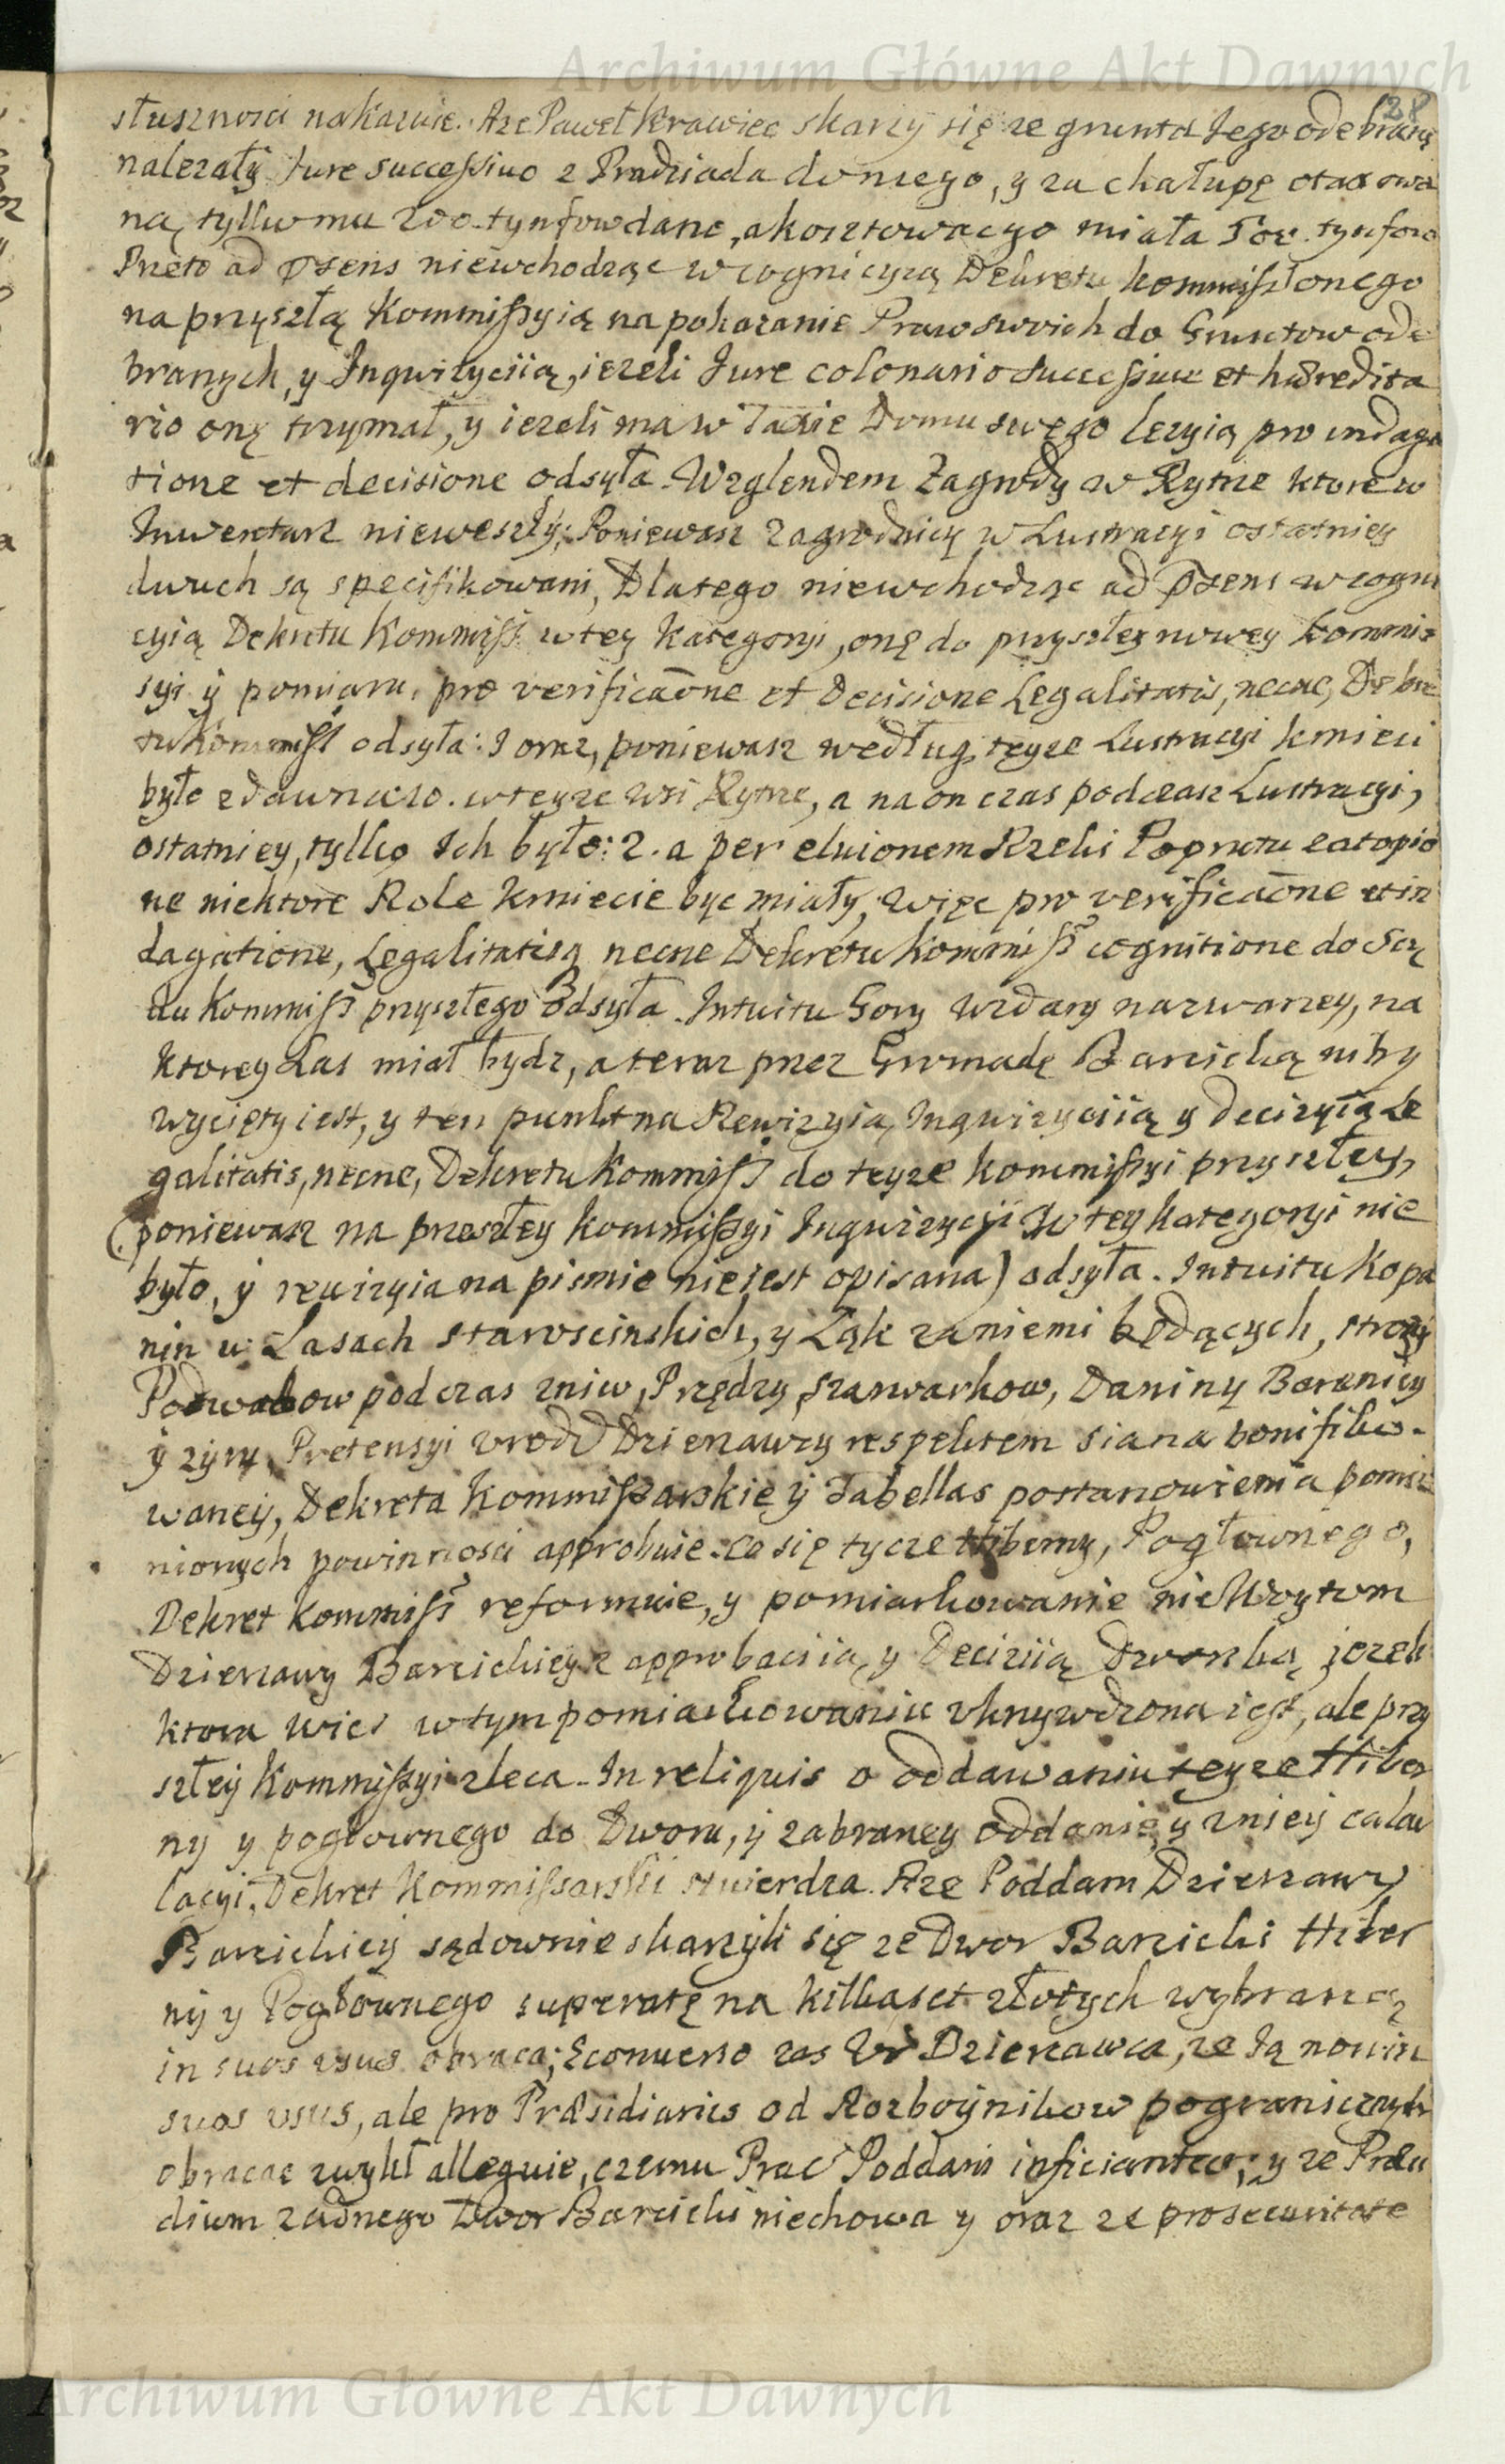 Archiwum Główne Akt Dawnych
28
słusznosci nakazuie. Aze Paweł Krawiec skarzy się ze grunta Jego odebrane
nalezały Jure successivo z Pradziada do niego, y za chałupę otaxowa
ną, tylko mu 200. tynfow dane, a kosztowac go miała tynfow
Przeto ad psens niewchodząc w cognicyią Dekretu kommissionego
na przyszłą Kommissyią na pokazanie Praw swoich do Gruntow ode
branych, y Inqwizyciią, iezeli Jure colonario successivo et haeredita
rio onę trzymał, y iezeli ma w Taxie Domu swego lezyią pro indaga
tione et decisione odsyła. Wzglendem Zagrody w Rytrze ktore w
Inwentarz nieweszły; Poniewasz zagrodnicy w Lustracyi ostatniey
dwuch są specifikowani, Dlatego niewchodząc ad psens w cogni
cyią Dekretu Kommiss w tey kategoryi, onę do przyszłey nowey kommis
syi y pomiaru, pro verificaone et Decisione Legalitatis, necne, Dekre
tu Kommiss odsyła: I oraz, poniewasz według teyze Lustracyi kmieci
było zdawna 10. w teyze wsi Rytrze, a na on czas podczas Lustracyi,
ostatniey, tylko Ich było: 2. a per eluionem Rzeki Popratu zatopio
ne niektore Role kmiecie byc miały, więc pro verificaone et in
dagatione, Legalitatis, necne Dekretu Kommiss cognitione do Są
du Kommiss przyszłego odsyła. Intuitu Gory Wzdary nazwaney, na
ktorey Las miał bydz, a teraz przez Gromadę Barcicką niby
wycięty iest, y ten punkt na Rewizyią, Inqwizyciią y decizyią Le
galitatis, necne, Dekretu Kommiss do teyze kommissyi przyszłey,
(poniewasz na przeszłey kommissyi Inqwizycyi w tey kategoryi nie
było, y rewizyia na pismie nie iest opisana) odsyła. Intuitu Kopa
nin w Lasach starościnskich, y Łąk za niemi będących, strozy
Podwodow podczas zniw, Przędzy, szarwarkow, Daniny Baraniey
y zyru, Pretensyi urodz Dzierzawcy respektem siana bonifiko-
waney, Dekreta Kommissarskie y Tabellas postanowienia pomie
nionych powinnosci approbuie. Co się tycze Hiberny, Pogłownego,
Dekret Kommiss reformuie, y pomiarkowanie nie Woytom
Dzierzawy Barcickiey z approbaciią, y Deciziią Dworską, jezeli
ktora wies w tym pomiarkowaniu ukrzywdzona iest, ale przy
szłey Kommissyi zleca. In reliquis o oddawaniu teyze Hiber
ny y pogłownego do Dworu, y zabraney oddanie y zniey calcu
lacyi, Dekret Kommissarski stwierdza. Aze Poddani Dzierzawy
Barcickiey sądownie skarzyli się ze Dwor Barcicki Hiber
ny y Pogłownego superatę na kilkaset złotych wybraną
in suos usus obraca; Econverso zas Ur Dzierzawca, ze Ją non in
suos usus, ale pro Praesidiariis od Rozboynikow pograniczych
obracac zwykł alleguie, czemu Prac Poddani inficiantur, y ze Praesi
dium zadnego Dwor Barcicki niechowa y oraz ze pro securitate
Archiwum Główne Akt Dawnych